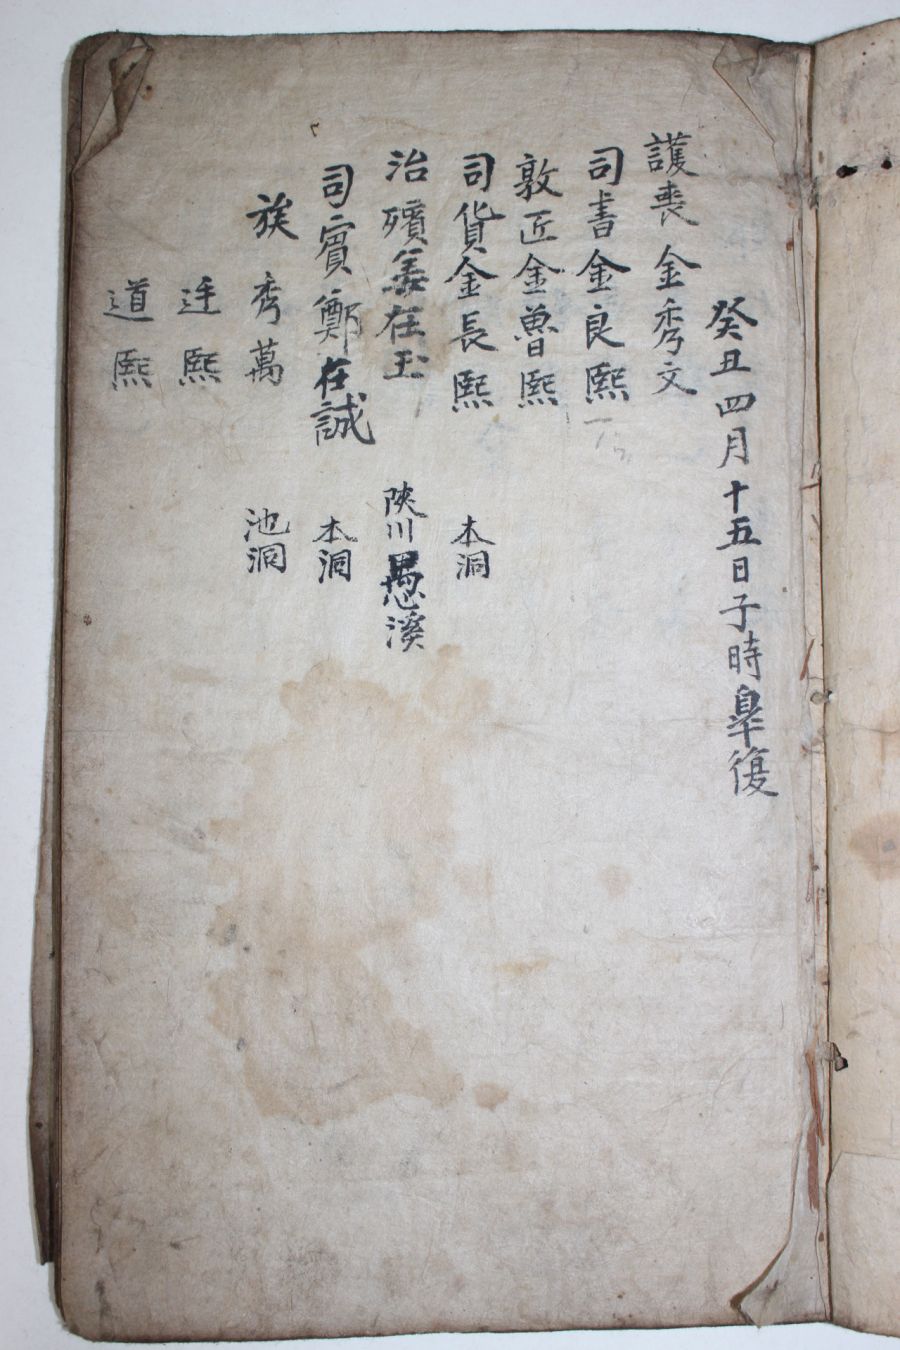 癸丑四月十五日子時皐復
護喪 金秀文
司書 金良熙
敦匠 金魯熙
司貨 金長熙 本洞
治殯 姜在玉 陜川 愚溪
司賓 鄭在誠 本洞
族 秀萬 池洞
廷熙
道熙